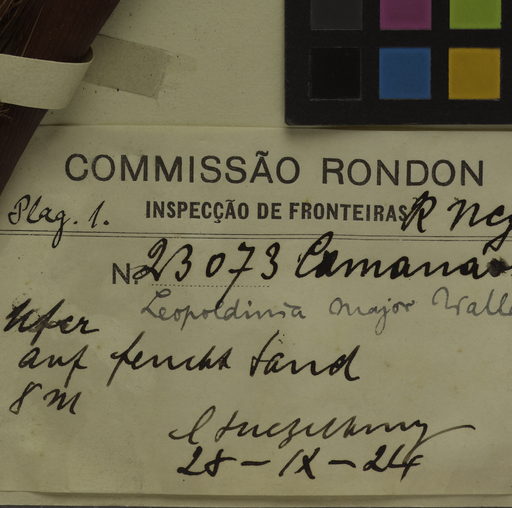 COMMISSÃO RONDON
Plag. 1. INSPECÇÃO DE FRONTEIRAS R Neg
No 23073 Camanaos
Leopoldinia major Walla
Ufer
auf feucht Sand
8 m
28-IX-24